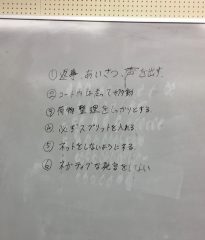 ① 返事 あいさつ、声を出す
② コート内は走って移動
③ 荷物整理をしっかりとする
④ 必ずスプリットを入れる
⑤ ネットをしないようにする
⑥ ネガティブな発言をしない